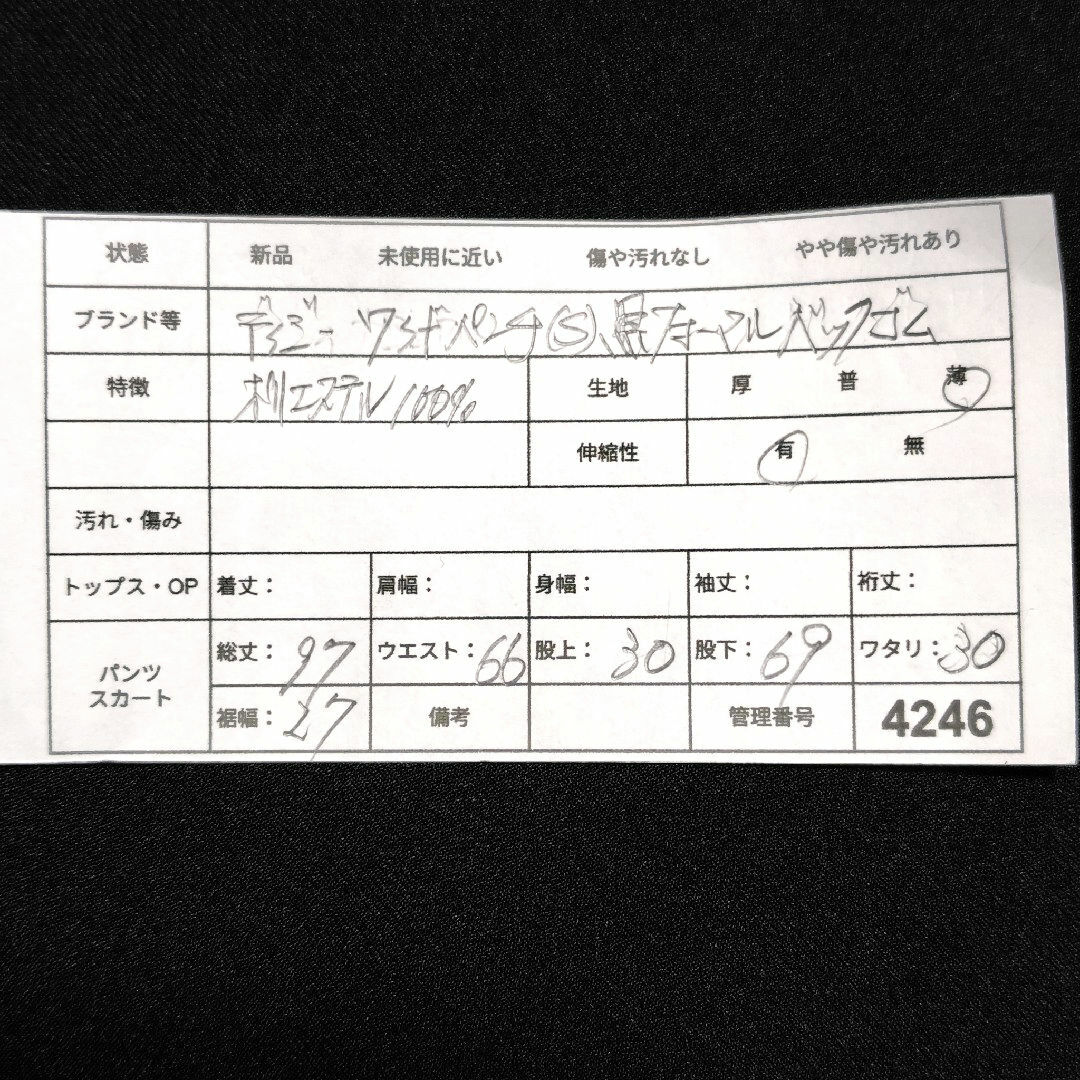 状態 新品 未使用に近い 傷や汚れなし やや傷や汚れあり
ブランド等 ワイドパンツ(S)黒フォーマルバックゴム
特徴 ポリエステル100% 生地 厚 普 薄
伸縮性 有 無
汚れ・傷み
トップス・OP 着丈: 肩幅: 身幅: 袖丈: 裄丈:
パンツ スカート 総丈: 97 ウエスト: 66 股上: 30 股下: 69 ワタリ: 30
裾幅: 27 備考 管理番号 4246